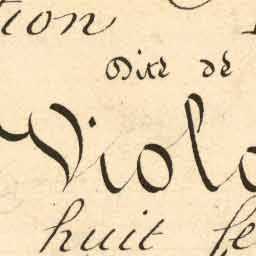 tion
Dite de
Violo
huit fe